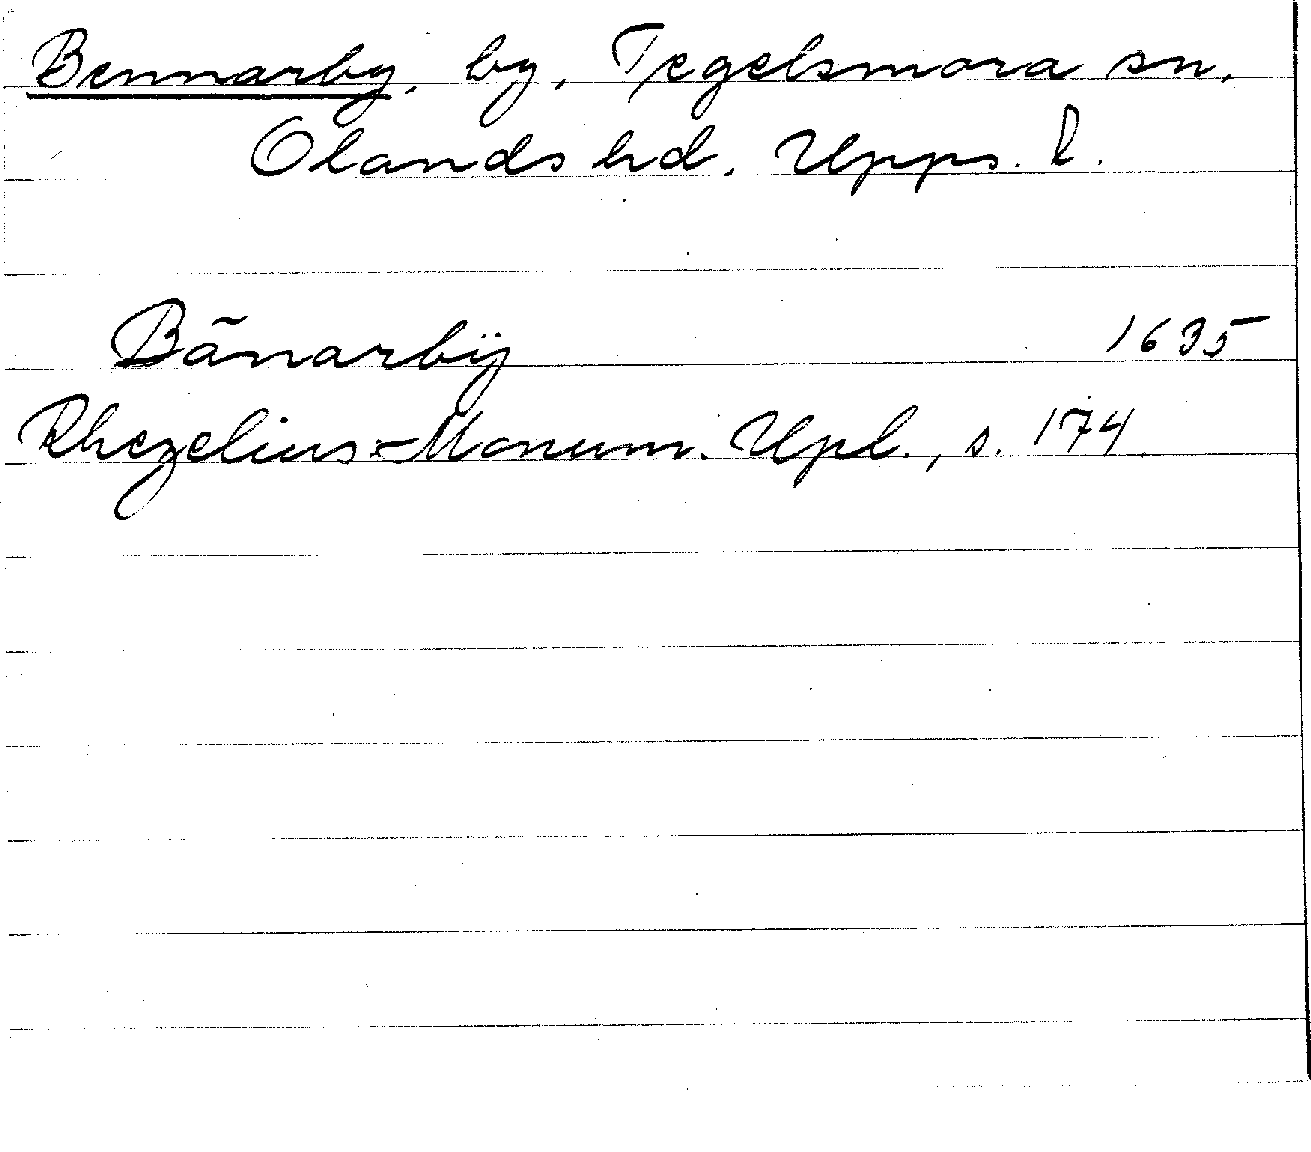 Bennarby, by, Tegelsmora sn,
Olands hd, Upps. l.
Bãnarbÿ 1635
Rhezelius-Monum. Upl., s. 174.